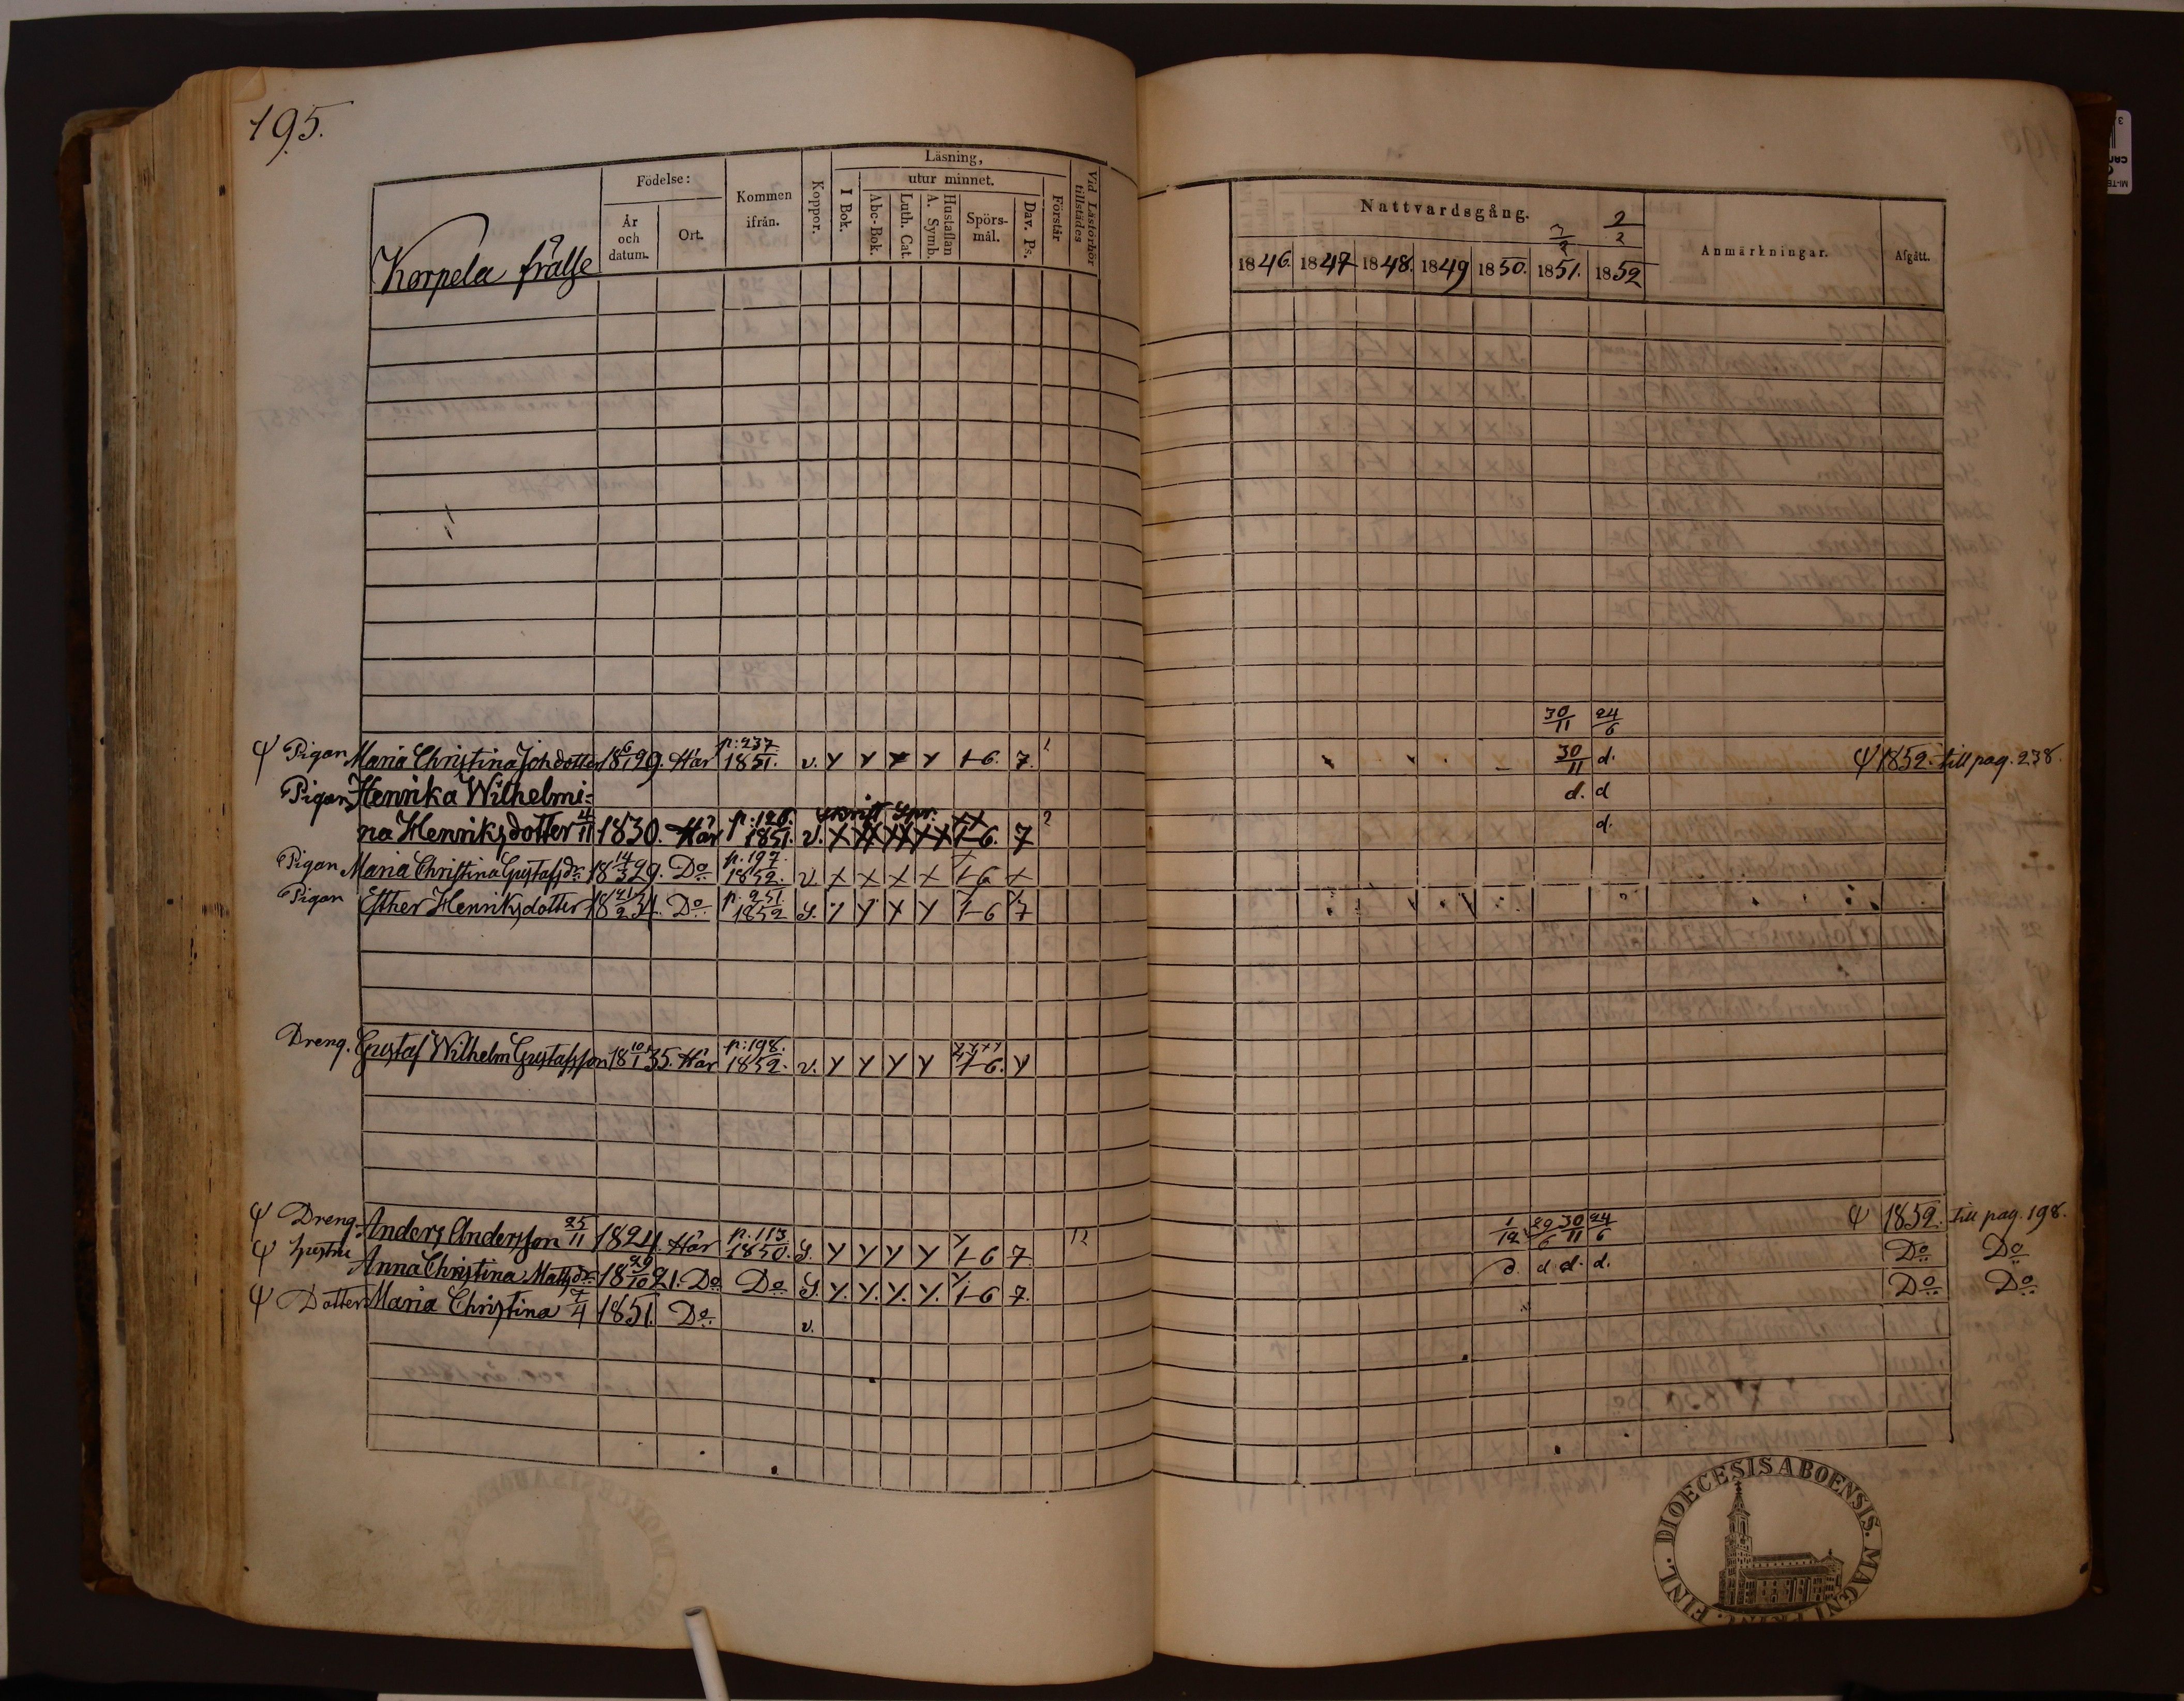 195.
Korpela frälse
Födelse:
År och datum.
Ort.
Kommen ifrån.
Koppor.
Läsning,
I Bok.
utur minnet.
Abc-Bok.
Luth. Cat.
Hustaflan A. Symb.
Spörs-mål.
Dav. Ps.
Förstår
Vid Läsförhör tillstädes
Nattvardsgång.
2/2
1846. 1847 1848. 1849 1850. 1851. 1852
Anmärkningar.
Afgått.
30/11 24/6
Pigan Maria Christina Johdotter 18 6/1 29. Här p: 237. 1851. v. Y Y Y Y 1-6. 7. 30/11 d. 1852. till pag. 238.
Pigan Henrika Wilhelmi= d. d
na Henriksdotter 4/11 1830. Här p: 120. 1851. v. X XX XX XX 1-6. 7 d.
Pigan Maria Christina Gustafsdr. 18 14/3 29. Do p. 197. 1852. v. X X X X 1-6 X
Pigan Esther Henriksdotter 18 21/2 34. Do p. 251. 1852 S. Y Y X Y 1-6 7
Dreng. Gustaf Wilhelm Gustafsson 18 10/1 35. Här p: 198. 1852. v. Y Y Y Y 1-6. Y
Dreng. Anders Andersson 25/11 1824. Här p. 113. 1850. S. Y Y Y Y 1-6 7. 1/12 29/6 30/11 24/6 1852. till pag. 198.
hustru Anna Christina Mattsdr. 18 29/10 21. Do Do S. Y. Y. Y. Y. 1-6 7. d. d d. d. Do Do
Dotter Maria Christina 7/4 1851. Do v. Do Do
FINL. DIOECESIS ABOENSIS. MAGNI PRINC.